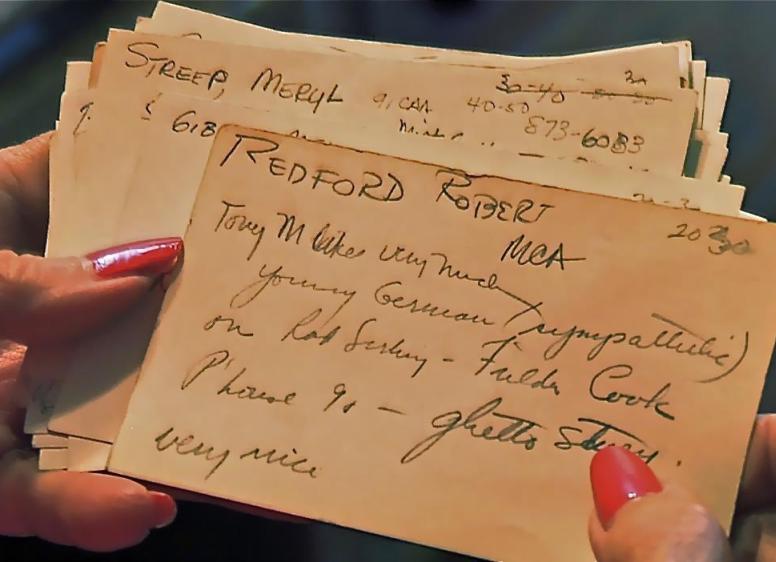 STREEP, MERYL 9/CAA 40-50
873-6083
618
REDFORD ROBERT 20 30
MCA
Tony M likes very much
young German (sympathetic)
on Rod Serling - Fielder Cook
P'house 90 - ghetto story.
very nice